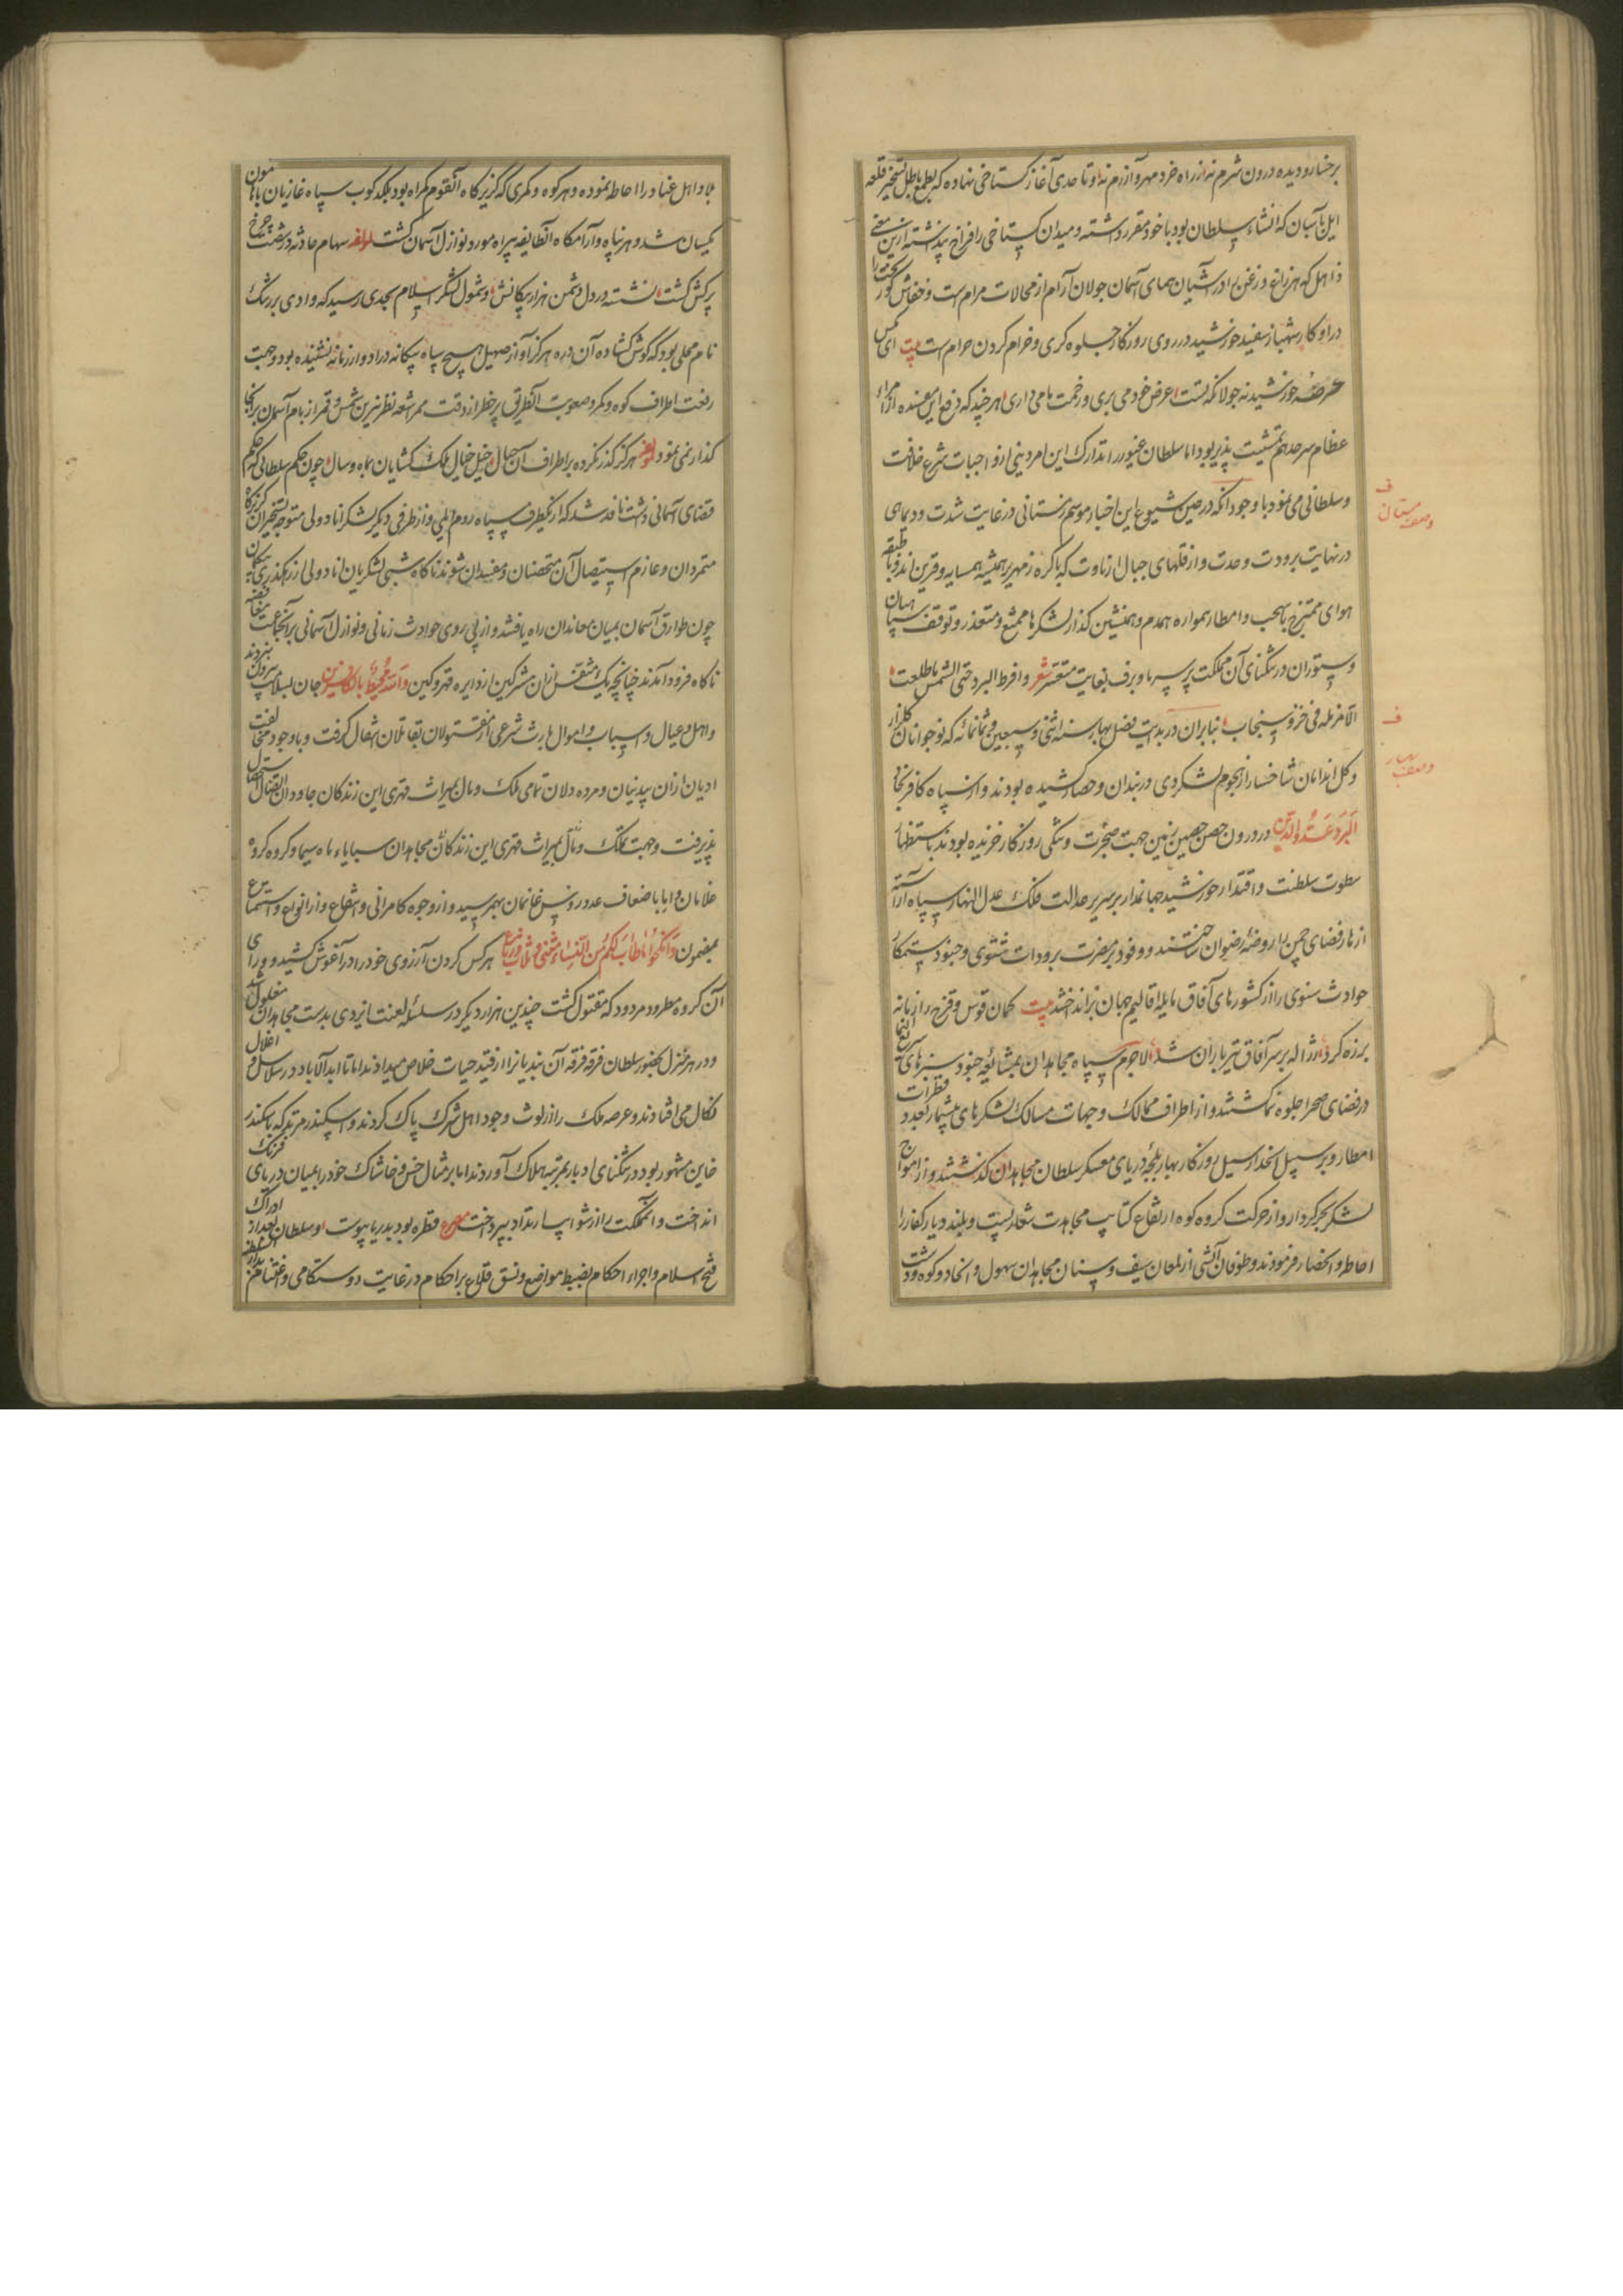 برخسار و دیده درون شرم نه از راه خرد مهر و آزرم نه و تا حدی آغاز گستاخی نهاده که بطمع باطل تسخیر قلعه
ایل باسان که انشاء سلطان بود با خود مقرر داشته و میدان گستاخی را فراخ پنداشته ازین معنی
ذاهل که هر زاغ و زغن را در آشیان همای آسمان جولان آرام از محالات مرام است و خفاش کور بخت را
در اوکار شهباز سفید خورشید در روی روزگار جلوه کری و خرام کردن حرام است بیت ای مگس
عرصه خورشید نه جولانگه تست عرض خود می بری و زحمت ما می داری هر چند که دفع این مفسده از امراء
عظام سرحد هم تمشیت پذیر بود اما سلطان غیور را تدارک این امر دینی از واجبات شرع خلافت
وسلطانی می نمود با وجود آنکه در حین شیوع این اخبار موسم زمستانی در غایت شدت و دیمای
در نهایت برودت و حدت و از قلهای جبال ارناوت که با کره زمهریر همیشه همسایه و قرین اند و با طبقه
هوای ممتزج بسحب و امطار همواره همدم و همنشین گذار لشکرها ممتنع و متعذر و توقف سپاهیان
وستوران در تنگنای آن مملکت پر سرما و برف بغایت متعسر شعر وافرط البرد حتی الشمس ما طلعت
الا مزمله فی خز و سنجاب بنا بران در بدایت فصل بهار سنه اثنی و سبعین و ثمانمائه که نوجوانان گلزار
وگل اندامان شاخسار از هجوم لشکر دی در بندان و حصار کشیده بودند و از سپاه کافر نجاد
البرد عدو الدین در درون حصن حصین زمین جهت ضجرت و تنگی روزگار خزیده بودند باستظهار
سطوت سلطنت و اقتدار خورشید جهاندار بر سریر عدالت فلک عدل النهار سپاه آراسته
ازهار فضای چمن را روضه رضوان ساختند و وفود پر مضرت برودات شتوی و جنود ستمکار
حوادث سنوی را از کشورهای آفاق مایله اقالیم جهان برانداختند بیت کمان قوس و قزح را زمانه
بر زه کرد ز ژاله بر سر آفاق تیرباران شد لاجرم سپاه مجاهدان بمشابه جنود سبزهای سریع النما
در فضای صحرا جلوه نما گشتند و از اطراف ممالک و جهات مسالک لشکرهای بیشمار بعدد قطرات
امطار و بر سبیل انحدار سیل روزگار بهار بلجه دریای معسکر سلطان مجاهدان گذشتند و از امواج
لشکر بحر کردار و از حرکت کروه کوه ارتفاع کتایب مجاهدت شعار پست و بلند دیار کفار را
احاطه و انحصار فرمودند و طوفان آتشی از لمعان سیف و سنان مجاهدان سهول و انجاد و کوه و دشت
وصف زمستان
وصف بهار
بلاد اهل عناد را احاطه نموده و هر کوه و کمری که گزیرگاه آن قوم گمراه بود بلکدکوب سپاه غازیان با هامون
یکسان شد و هر پناه و آرامگاه آن طایفه بیراه مورد نوازل آسمان گشت لمولفه سهام حادثه در شصت چرخ
پرکش گشت نشسته در دل دشمن هزار پیکانش و شمول لشکر اسلام بحدی رسید که وادی بزرنگ
نام محلی بود که گوش گشاده آن دره هرگز آواز صهیل هیچ سپاه بیگانه در ادوار زمانه نشنیده بود و جهت
رفعت اطراف کوه و کمر و صعوبت آن طریق پر خطر از دقت ممر اشعه نظر نیرین شمس و قمر از بام آسمان برانجا
گذار نمی نمود لمولفه هرگز گذر نکرده بر اطراف آن جبال خیل خیال ملک گشایان بماه و سال چون حکم سلطانی که حکم
قضای آسمانی داشت نافذ شد که از یک طرف سپاه روم ایلی و از طرفی دیگر لشکر اناطولی متوجه تسخیر آن گریزگاه
متمردان و عازم استیصال آن متحصنان و مفسدان شوند ناگاه شبی لشکریان اناطولی از رهگذری پنهان
چون طوارق آسمان بمیان معاندان راه یافتند و از پی روی حوادث زمانی و نوازل آسمانی بر آن جماعت بغتة
ناگاه فرود آمدند چنانچه یک متنفس ازان مشرکین از دایره قهر و کین والله محیط بالکافرین جان بسلامت بیرون نبردند
واهل و عیال و اسباب و اموال بارث شرعی از مقتولان بقاتلان انتقال گرفت و با وجود مخالفت
ادیان ازان بیدینان و مرده دلان تمامی ملک و مال بمیراث قهری این زندگان جاودان انتقال
پذیرفت و جهت تملک و مآل بمیراث قهری این زندگان مجاهدان سبایاء ماه سیما و گروه گروه
غلامان و اما باضعاف عدد رؤس غانمان بهم رسید و از وجوه کامرانی و انتفاع و از انواع و استمتاع
بمضمون فانکحوا ما طاب لکم من النساء مثنی و ثلاث و رباع هر کس کردن آرزوی خود را در آغوش کشید و ورای
آن گروه مطرود مردود که مقتول گشت چندین هزار دیگر در سلسله لعنت ایزدی بدست مجاهدان مغلول شد
ودر هر منزل بحضور سلطان فرقه فرقه آن بندیانرا از قید حیات خلاص میدادند اما تا ابد الاباد در سلاسل و اغلال
نکال می افتادند و عرصه ملک را از لوث وجود اهل شرک پاک کردند و اسکندر مرتد که باسکندر
خاین مشهور بود در تنگنای ادبار بمرتبه هلاک آوردند اما بر مثال خس و خاشاک خود را بمیان دریای فرنگ
انداخت و آن مملکت را از شوایب ارتداد بپرداخت مصرع قطره بود بدریا پیوست و سلطان بعد از ادراک
فتح اسلام و اجراء احکام بضبط مواضع و نسق قلاع بر احکام در غایت دوستکامی و اغتنام